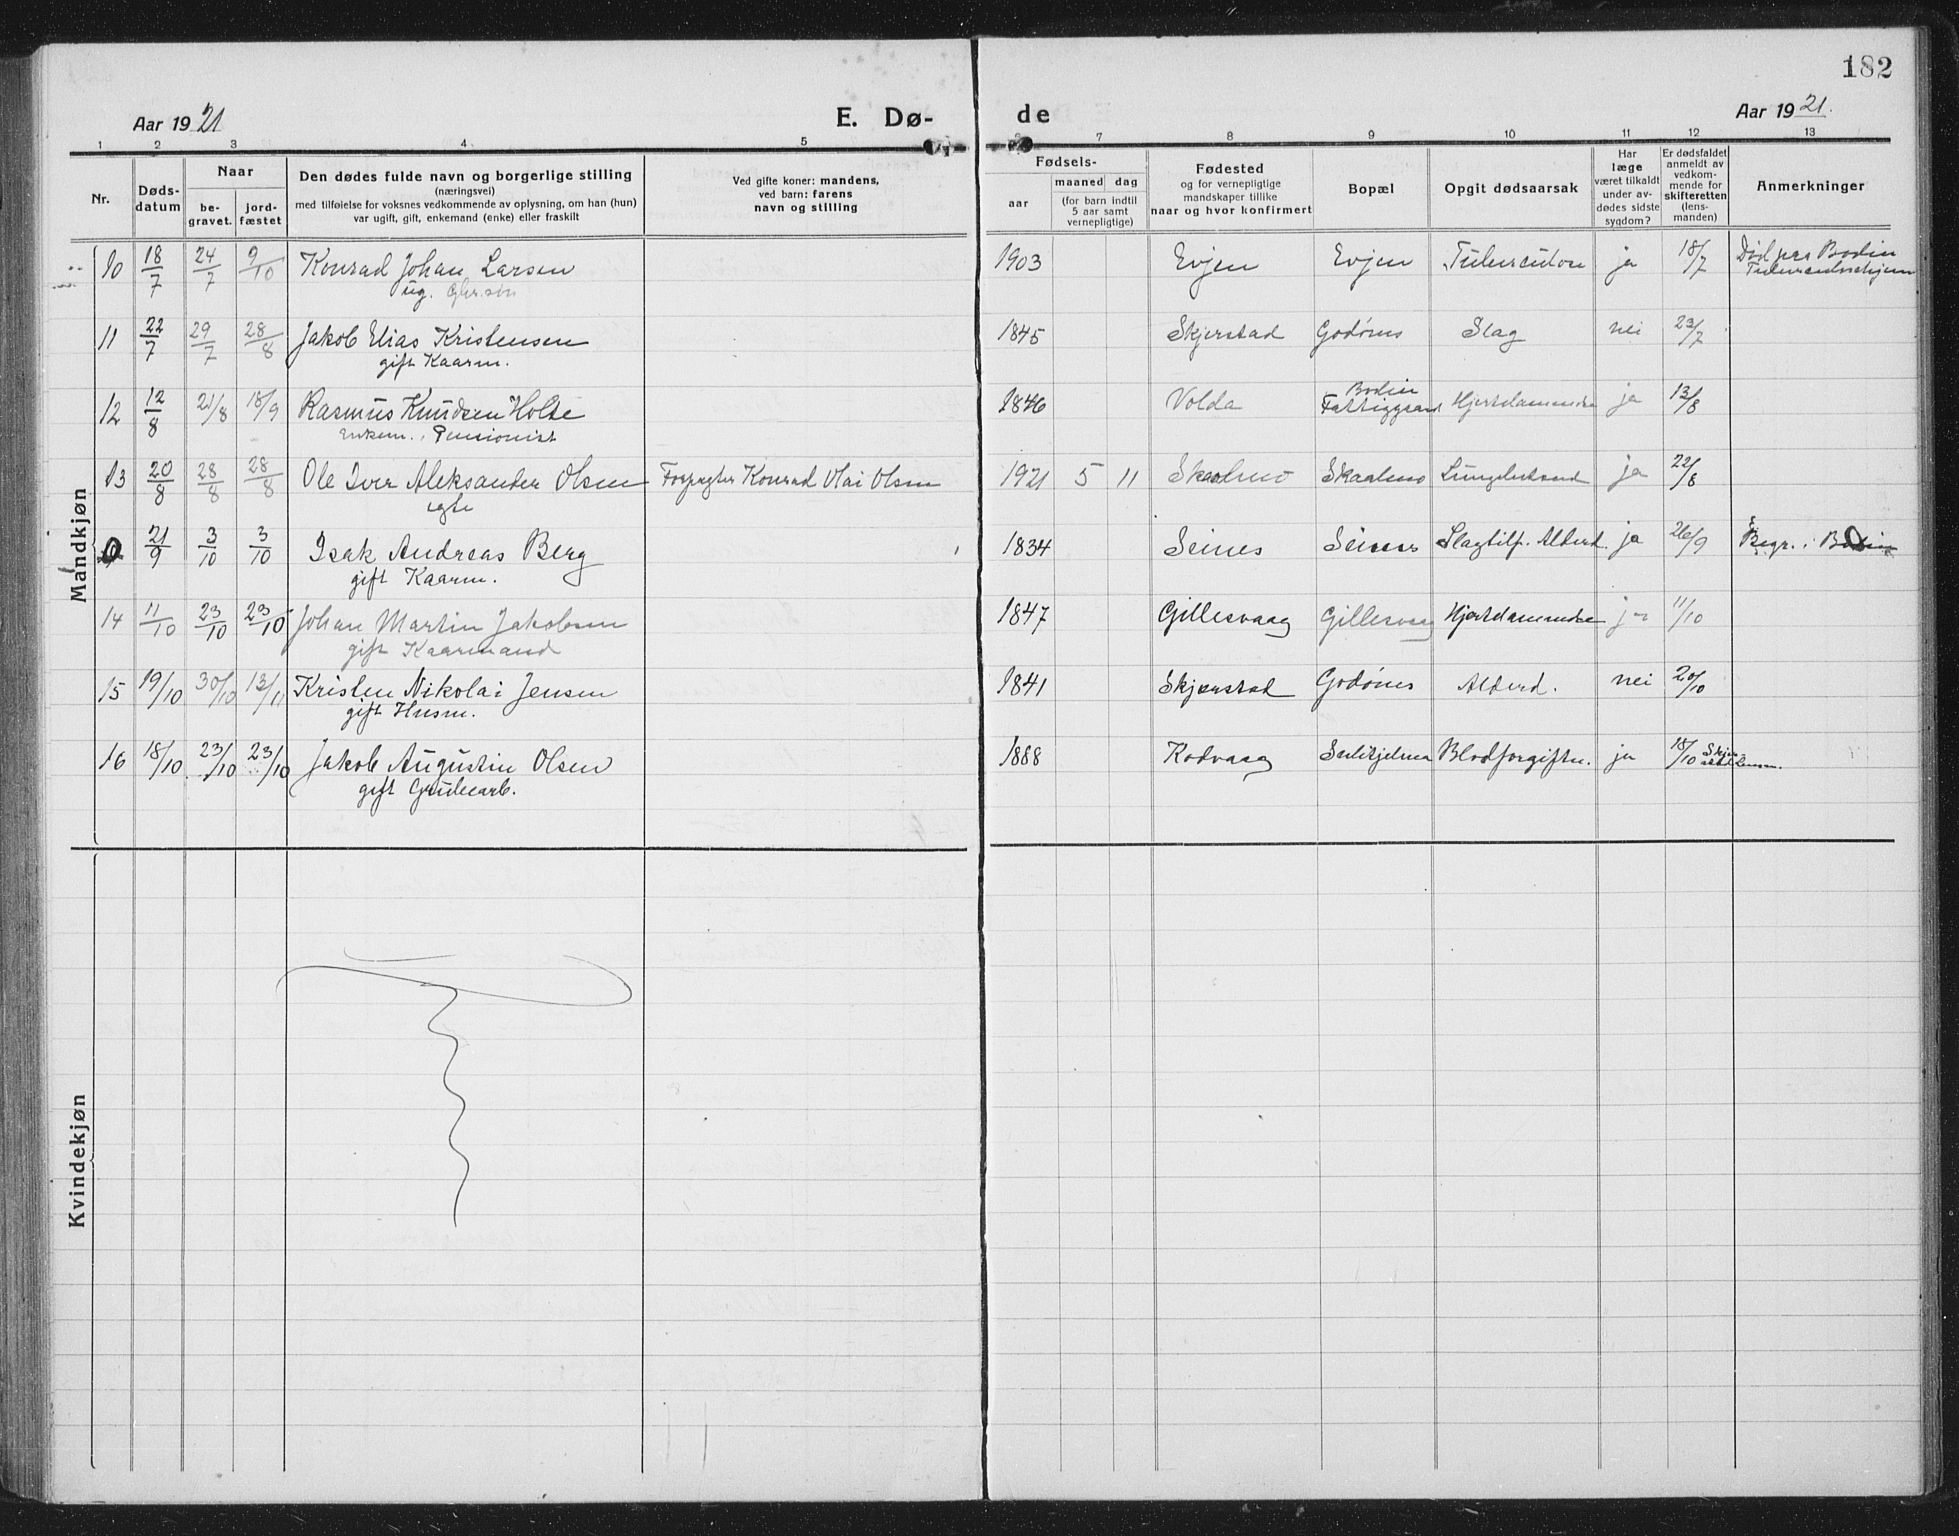 182
Aar 1921
E. Dø-
de
Aar 1921.
1 2 3 4 5
7 8 9 10 11 12 13
Nr.
Døds-
datum
Naar
be-
gravet.
jord-
fæstet
Den dødes fulde navn og borgerlige stilling
(næringsvei)
med tilføielse for voksnes vedkommende av oplysning, om han (hun)
var ugift, gift, enkemand (enke) eller fraskilt
Ved gifte koner: mandens,
ved barn: farens
navn og stilling
Fødsels-
aar
maaned dag
(for barn indtil
5 aar samt
vernepligtige)
Fødested
og for vernepligtige
mandskaper tillike
naar og hvor konfirmert
Bopæl
Opgit dødsaarsak
Har
læge
været tilkaldt
under av-
dødes sidste
sygdom?
Er dødsfaldet
anmeldt av
vedkom-
mende for
skifteretten
(lens-
manden)
Anmerkninger
Mandkjøn
10 18/7 24/7 9/10 Konrad Johan Larsen 1903 Evjen Evjen Tuberculose ja 18/7 Død paa Bodin
ug. Tuberculosehjem
11 22/7 29/7 28/8 Jakob Elias Kristensen 1845 Skjerstad Godønes Slag nei 23/7
gift Kaarm.
12 12/8 21/8 18/9 Rasmus Knudsen Holte 1846 Volda Bodin Fattiggaard Hjertelammelse ja 13/8
Enkem. Pensionist
13 20/8 28/8 28/8 Ole Iver Aleksander Olsen Forpagter Konrad Olai Olsen 1921 5 11 Skaalmo Skaalmo Lungebetænd ja 22/8
egte
0 21/9 3/10 3/10 Isak Andreas Berg 1834 Seines Seines Slagtilf. Alderd. ja 26/9 Begr. i Bodin
gift Kaarm.
14 11/10 23/10 23/10 Johan Martin Jakobsen 1847 Gillesvaag Gillesvaag Hjertelammelse ja 11/10
gift Kaarmand
15 19/10 30/10 13/11 Kristen Nikolai Jensen 1841 Skjerstad Godønes Alderd. nei 20/10
gift Husm.
16 18/10 23/10 23/10 Jakob Augustin Olsen 1888 Kodvaag Sulitjelma Blodforgiftn. ja 18/10
gift Grubearb.
Kvindekjøn